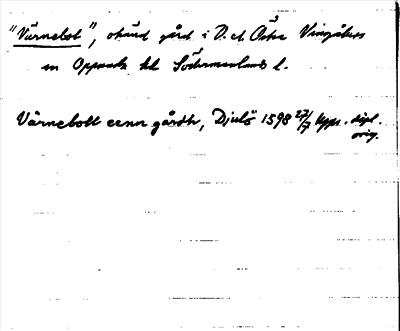 "Värnebot", okänd gård i D. el. Östra Vingåkers
sn Oppunda hd Södermanlands l.
Värnebott eenn gårdh, Djulö 1598 27/7 Upps. dipl.
orig.